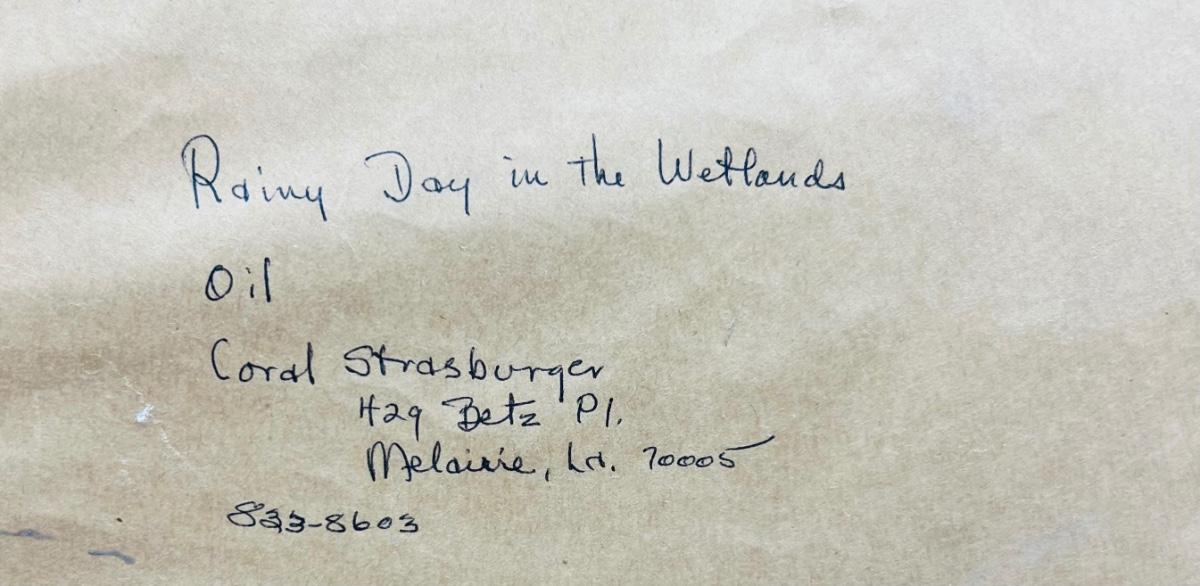 Rainy Day in the Wetlands
Oil
Coral Strasburger
429 Betz Pl.
Metairie, La. 70005
833-8603